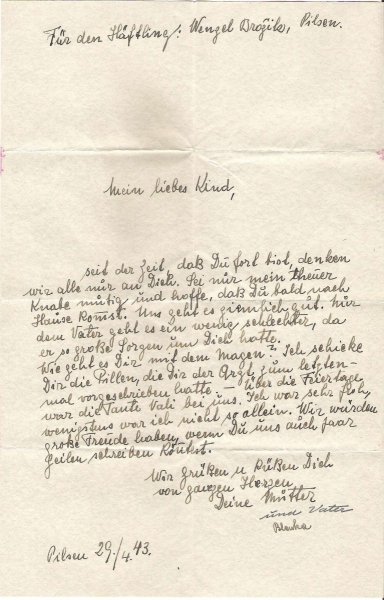 Für den Häftling: Wenzel Brožik, Pilsen.
Mein liebes Kind,
seit der Zeit, daß Du fort bist, denken
wir alle nur an Dich. Sei nur mein theuer
Knabe mutig und hoffe, daß Du bald nach
Hause komst. Uns geht es ziemlich gut. Nur
dem Vater geht es ein wenig schlechter, da
er so große Sorgen um Dich hatte.
Wie geht es Dir mit dem Magen? Ich schicke
Dir die Pillen, die Dir der Arzt zum letzten-
mal vorgeschrieben hatte. – Über die Feiertage
war die Tante Vali bei uns. Ich war sehr froh,
wenigstens war ich nicht so allein. Wir würden
große Freude haben, wenn Du uns auch paar
Zeilen schreiben könntest.
Wir grüßen u küßen Dich
von ganzen Herzen
Deine Mutter
und Vater
Pilsen 29./4.43.